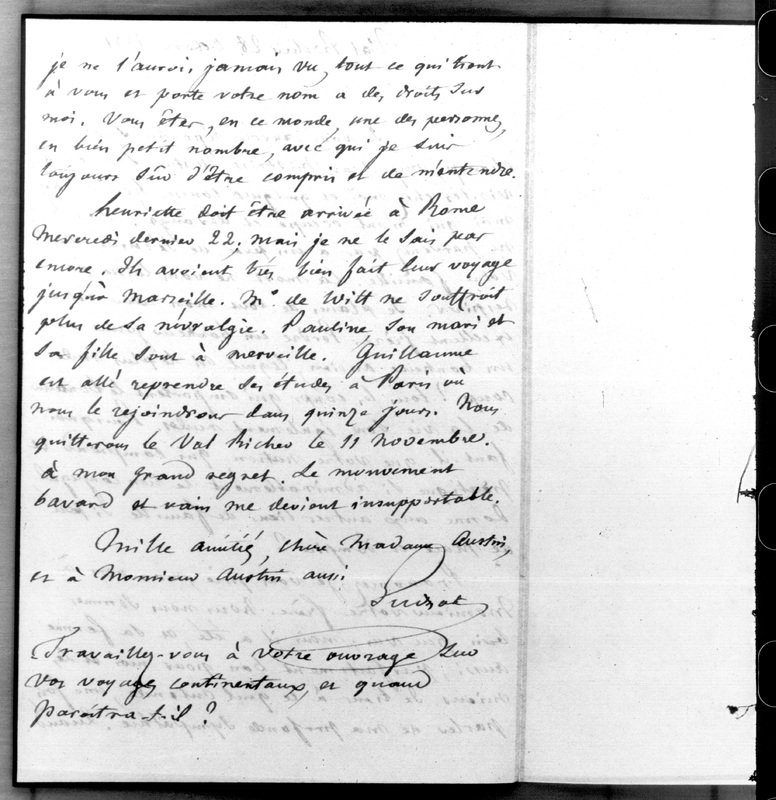 je ne l'aurois jamais vu, tout ce qui tient
à vous et porte votre nom a des droits sur
moi. Vous êtes, en ce monde, une des personnes,
en bien petit nombre, avec qui je suis
toujours sûr d'être compris et de m'entendre.
Henriette doit être arrivée à Rome
Mercredi dernier 22, mais je ne le sais pas
encore. Ils avoient très bien fait leur voyage
jusqu'à Marseille. Mr. de Witt ne souffroit
plus de sa névralgie. Pauline, son mari et
sa fille sont à merveille. Guillaume
est allé reprendre ses études à Paris où
nous le rejoindrons dans quinze jours. Nous
quitterons le Val Richer le 11 Novembre.
à mon grand regret. Le mouvement
bavard et vain me devient insupportable.
Mille amitiés, chère Madame Austin,
et à Monsieur Austin aussi
Guizot
Travaillez-vous à votre ouvrage sur
vos voyages continentaux, et quand
paroîtra-t-il ?